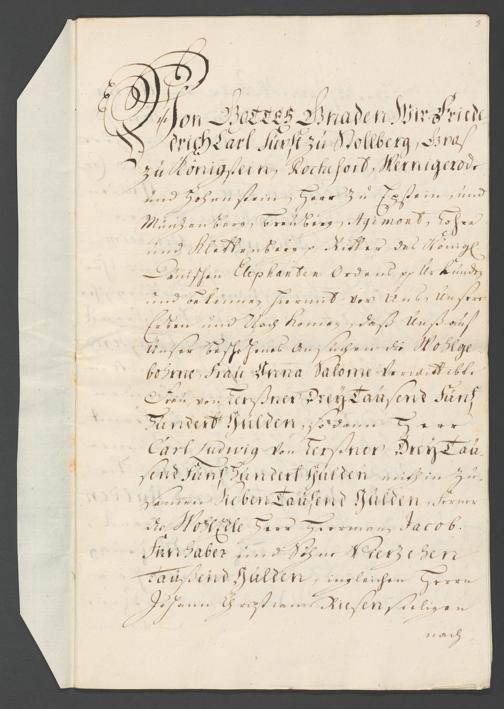 3
Von GOTTES Gnaden Wir Friede
drich Carl Fürst zu Stollberg, Graf
zu Königstein, Rochefort, Wernigerode
und Hohenstein, Herr zu Epstein, und
Müntzenberg, Breuberg, Aigmont, Lohra
und Klettenberg p. Ritter des Königl.
Dänischen Elephanten Ordens pp Urkunden
und bekennen hiermit vor Uns, Unsere
Erben und Nach kommen, daß Uns auf
Unser beschehenes Ansuchen die Wohlge
bohrne Frau Anna Salome verwittibte
Frau von Dreÿ Tausend Fünf
Hundert Gulden, sodann Herr
Carl Ludwig von Dreÿ Tau
send Fünf Hundert Gulden auch in Zu
sammen Sieben Tausend Gulden, ferner
der WohlEdle Herr Herrmann Jacob
Fünhaber und Söhne Vierzehen
Tausend Gulden, ingleichen Herrn
Johann Christian Riesen seeligen
nach